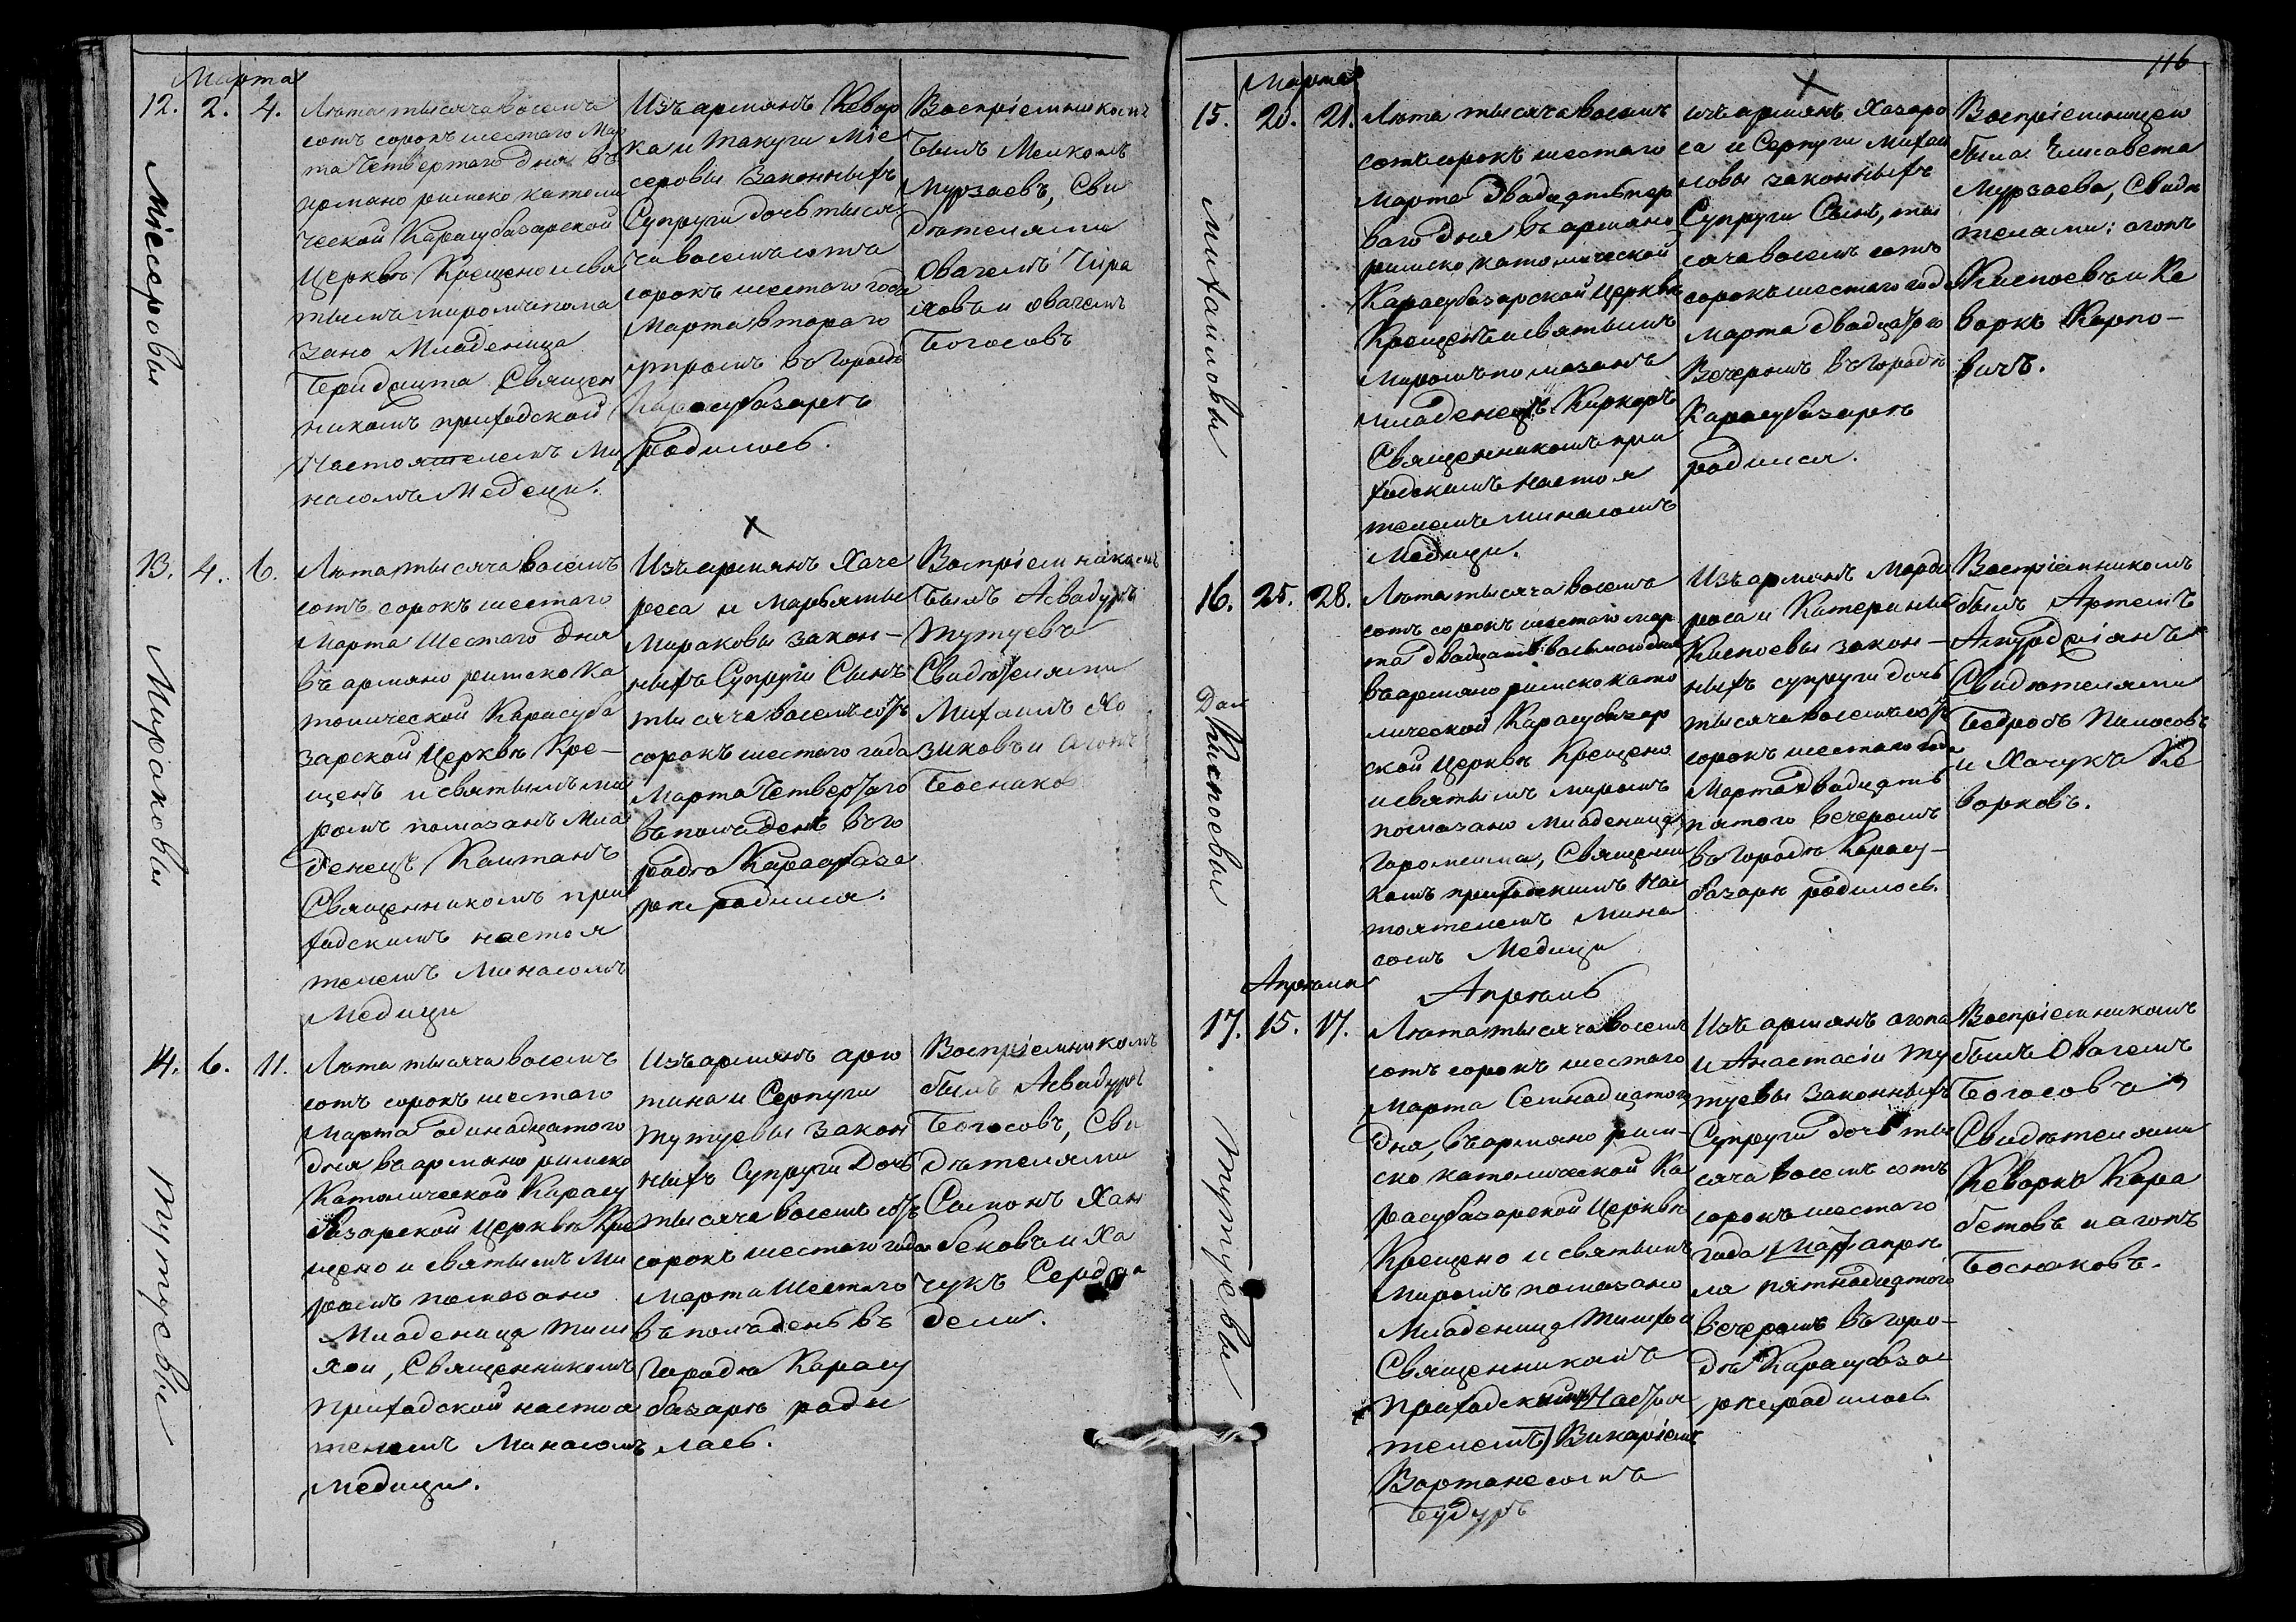 Марта
12. 2. 4.
Мiесеровы
Лѣта тысяча восемъ
сотъ сорокъ шестаго Мар
та Четвертаго дня въ
армяно римско катали
ческой Карасубазарской
Церквѣ Крещено и свя
тымъ миромъ пома
зано Младеница
Священ
никомъ приходской
Настоятелемъ Ми
насомъ Медеци.
Изъ армянъ Кевор
ка и Такуги Мiе
серовы Законныхъ
Супруги дочь тыся
ча восемъ сотъ
сорокъ шестаго года
Марта втораго
утромъ въ городѣ
Карасубазарѣ
родилось.
Воспріемникомъ
былъ Мелкомъ
Мурзаевъ, Сви
дѣтелями
Овагемъ Чира
ковъ и Овагемъ
Богосовъ
13. 4. 6.
Мираковы
Лѣта тысяча восемъ
сотъ сорокъ шестаго
Марта Шестаго дня
въ армяно римско ка
толической Карасуба
зарской Церквѣ Кре-
щенъ и святымъ ми
ромъ помазанъ Мла
денецъ Каитанъ
Священникомъ при
ходскимъ настоя
телемъ Минасомъ
Медици
х
Изъ армянъ Хаче
реса и Марьяты
Мираковы закон-
ныхъ Супруги Сынъ
тысяча восемъ сотъ
сорокъ шестаго года
Марта Четвертаго
въ полъденъ въ го
родѣ Карасубаза
рѣ родился.
Воспріемникомъ
былъ Асвадуръ
Тутуевъ
Свидѣтелями
Михаилъ Хо
зиковъ и Агопъ
Боснаков
14. 6. 11.
Тутуевы
Лѣта тысяча восемъ
сотъ сорокъ шестаго
Марта одинадцатого
дня въ армяно римско
Католической Карасу
базарской Церквѣ Кре
щено и святымъ Ми
ромъ помазано
Младеница Тиш
хои, Священникомъ
Приходской настоя
телемъ Минасомъ
Медици.
Изъ армянъ арю
тина и Серпуги
Тутуевы Закон
ныхъ Супруги Дочь
тысяча восемъ сотъ
сорокъ шестаго года
Марта Шестаго
въ полъденъ въ
Городѣ Карасу
базарѣ роди
лась.
Воспріемникомъ
былъ Асвадуръ
Богосовъ, Сви
дѣтелями
Симонъ Хан
бековъ и Ха
чукъ
дели.
116
Марта
15. 20. 21.
Михаиловы
Лѣта тысяча восемъ
сотъ сорокъ шестаго
Марта двадцать пер
ваго дня въ армяно
римско католической
Карасубазарской Церквѣ
Крещенъ и святымъ
Миромъ помазанъ
младенецъ Киркоръ
Священникомъ при
ходскимъ Настоя
телемъ Минасомъ
Медици.
х
изъ армянъ Хазаро
са и Серпуги Михаи
ловы законныхъ
Супруги Сынъ, ты
сяча восемъ сотъ
сорокъ шестаго год
Марта двадцатого
Вечеромъ въ городѣ
Карасубазарѣ
родился.
Воспріемницею
была Елисавета
Мурзаева, Свидѣ
телами: агопъ
Киспоевъ и Ке
воркъ Карпо-
вичъ.
16. 25. 28.
Киспоевы
Лѣта тысяча восемъ
сотъ сорокъ шестаго мар
та двадцать восьмаго дня
въ армяно римско като
лической Карасубазар
ской Церквѣ Крещено
и святымъ миромъ
помазано Младеница
Горомсима, Священни
комъ приходскимъ Нас
тоятелемъ Мина
сомъ Медици
Изъ армянъ Марди
роса и Катерины
Киспоевы закон-
ныхъ супруги дочь
тысяча восемъ сотъ
сорокъ шестаго года
Марта двадцать
пятого вечеромъ
въ городѣ Карасу-
базарѣ родилось.
Воспріемникомъ
былъ Артемъ
Свидѣтелями
Бедросъ Пилосовъ
и Хачукъ Ке
ворковъ.
Апрѣля
Апрѣль
17. 15. 17.
Тутуевы
Лѣта тысяча восемъ
сотъ сорокъ шестаго
Марта Семнадцатого
дня, въ армяно рим-
ско католической Ка
расубазарской Церквѣ
Крещено и святымъ
Миромъ помазано
Младеница Тишхоа
Священникомъ
Приходскимъ Настоя
телемъ Викаріемъ
Вартанесомъ
Будуръ
Изъ армянъ агопа
и Анастасіи Ту
туевы Законныхъ
Супруги дочь ты
сяча восемъ сотъ
сорокъ шестаго
года Мар апрѣ
ля пятнадцатого
вечеромъ въ горо-
дѣ Карасубаза
рѣ родилось.
Воспріемникомъ
былъ Овагемъ
Богосовъ
Свидѣтелями
Кеворкъ Кара
бетовъ и агопъ
Боснаковъ.